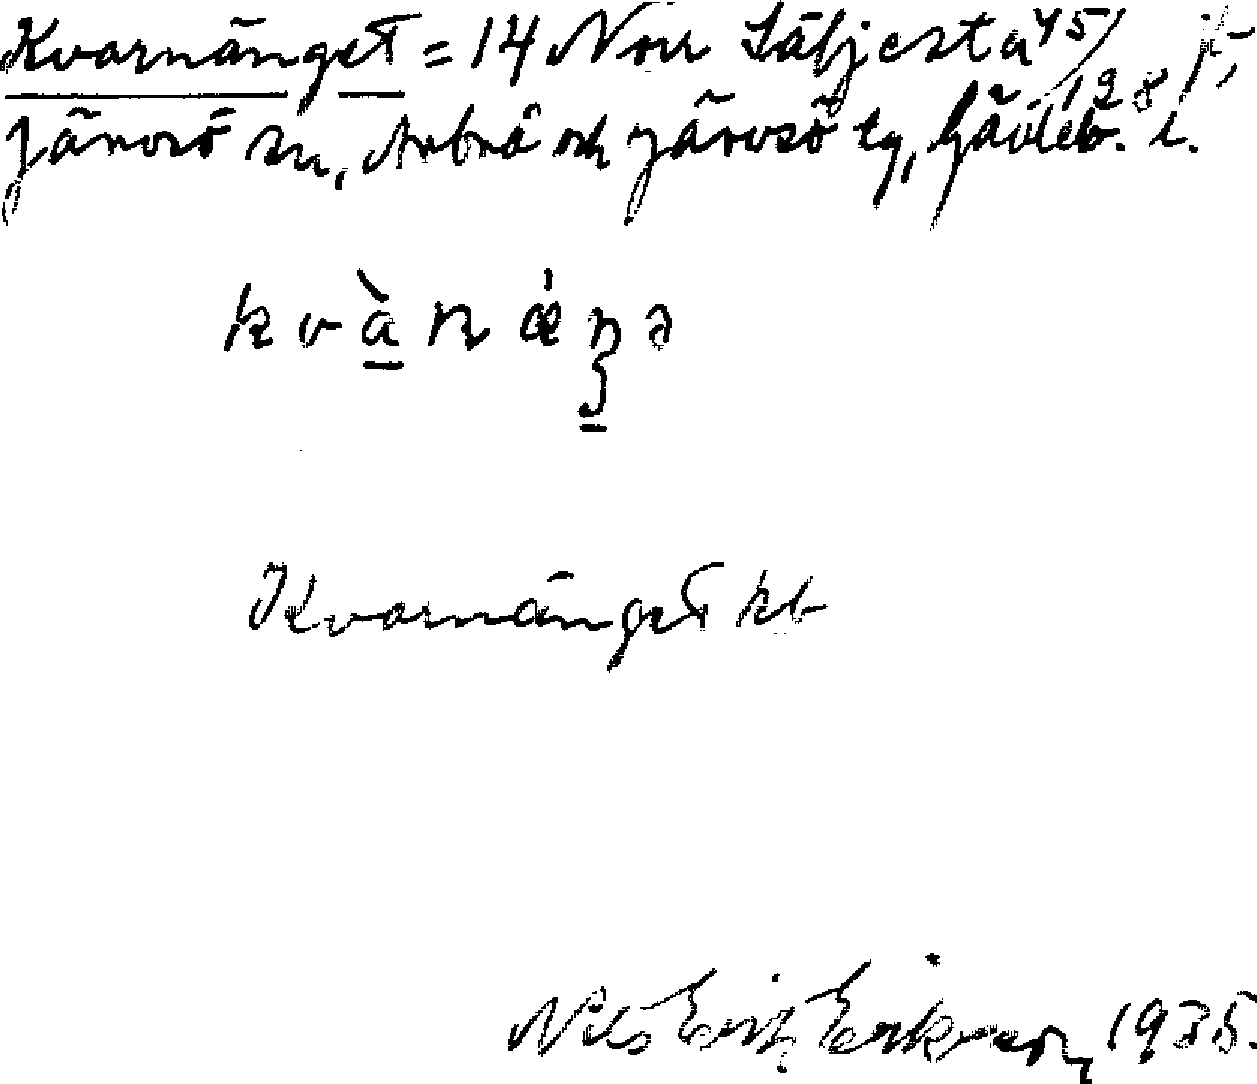 Kvarnänget = 14 Norr Säljesta 45/128 jt,
Järvsö sn, Arbrå och Järvsö tg, Gävleb. l.
kvànǽŋə
Kvarnänget kb
Nils Erik Erikson, 1935.